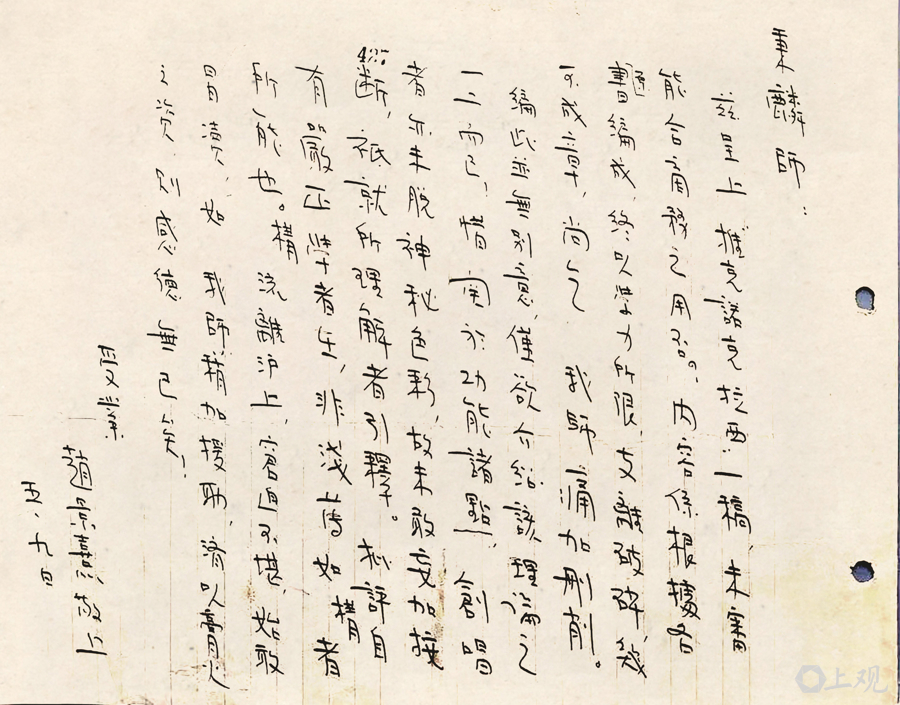 秉麟師：
茲呈上 擴克諾克拉西 一稿 未審
能合商務之用否。內容係根據各
書編成，終以學力所限，支離破碎，幾
不成章，尚乞 我師痛加刪削。
編此並無別意，僅欲介紹該理論之
一二而已，惜因於功能諸點，創唱
者亦未脫神秘色彩，故未敢妄加揆
斷，祇就所理解者引釋。批評自
有嚴正學者在，非淺薄如構者
所能也。構流離滬上，窘迫不堪，始敢
冒瀆，如 我師稍加援助，濟以膏火
之資，則感德無已矣！
受業
趙景 敬上
五．九日
上观